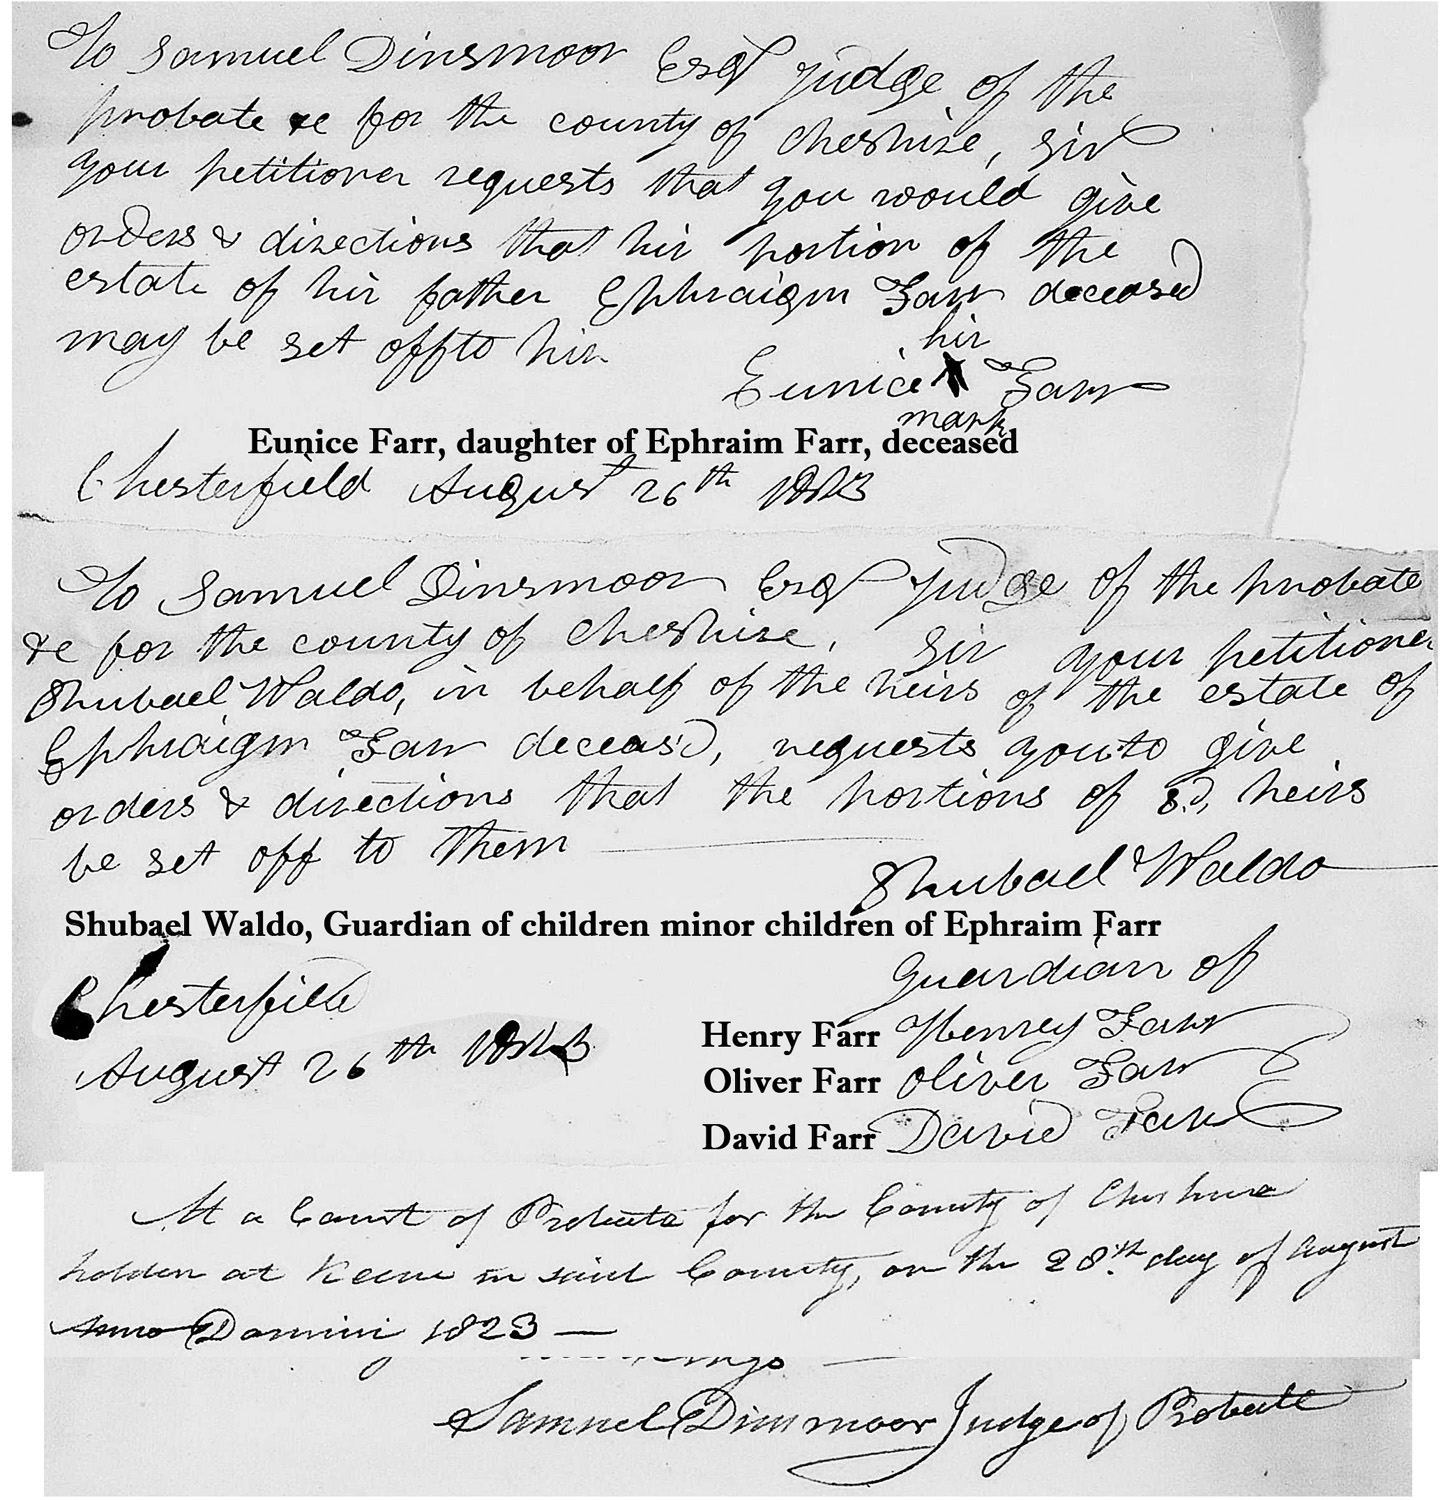 To Samuel Dinsmoor Esqr judge of the
probate &c for the county of Cheshire, Sir
your petitioner requests that you would give
orders & directions that hir portion of the
estate of hir father Ephraigm Farr deceased
may be set off to hir
hir
Eunice X Farr
mark
Eunice Farr, daughter of Ephraim Farr, deceased
Chesterfield August 26th 1823
To Samuel Dinsmoor Esqr judge of the probate
&c for the county of Cheshire, Sir your petitioner
Shubael Waldo, in behalf of the heirs of the estate of
Ephraigm Farr deceas'd, requests you to give
orders & directions that the portions of sd, heirs
be set off to them
Shubael Waldo
Shubael Waldo, Guardian of children minor children of Ephraim Farr
guardian of
Chesterfield
Henry Farr Henrey Farr
August 26th 1823
Oliver Farr Oliver Farr
David Farr David Farr
At a Court of Probate for the County of Cheshire
holden at Keene in said County, on the 28th day of August
Anno Domini 1823 —
Samuel Dinsmoor Judge of Probate